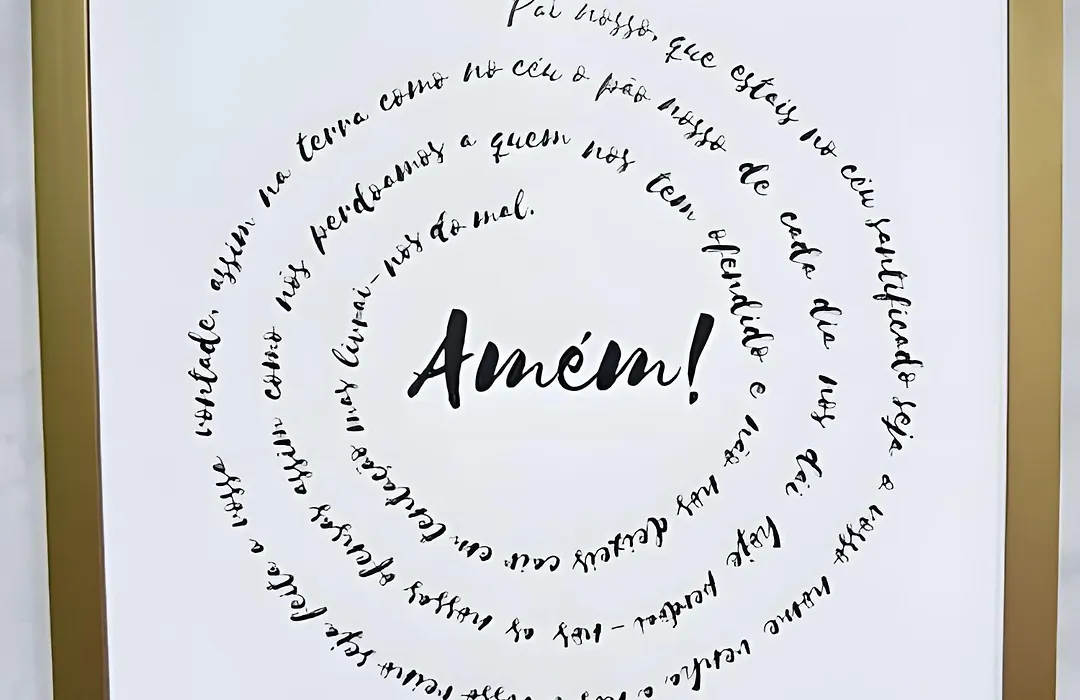 Pai nosso, que estais no céu santificado seja o vosso nome venha, a vosso reino seja feita a vossa vontade, assim na terra como no céu o pão nosso de cada dia nos dai hoje perdoai-nos as nossas ofensas assim como nós perdoamos a quem nos tem ofendido e não nos deixeis cair em tentação mas livrai-nos do mal.
Amém!